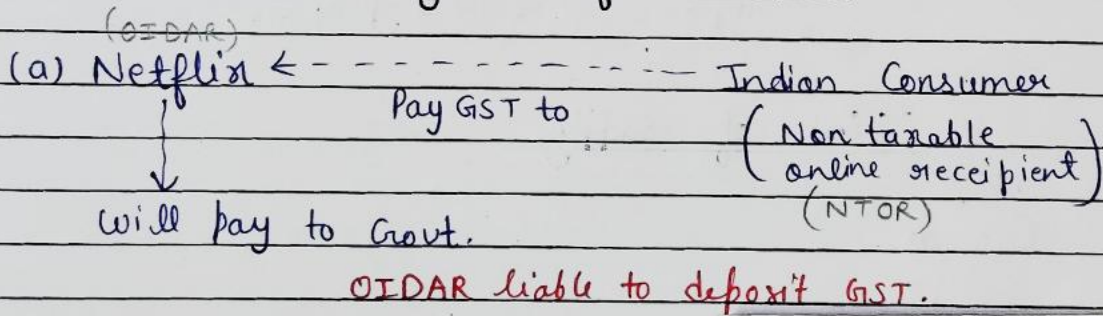 (OIDAR)
(a) Netflix ← Indian Consumer
Pay GST to
(Non taxable
online receipient)
(NTOR)
will pay to Govt.
OIDAR liable to deposit GST.